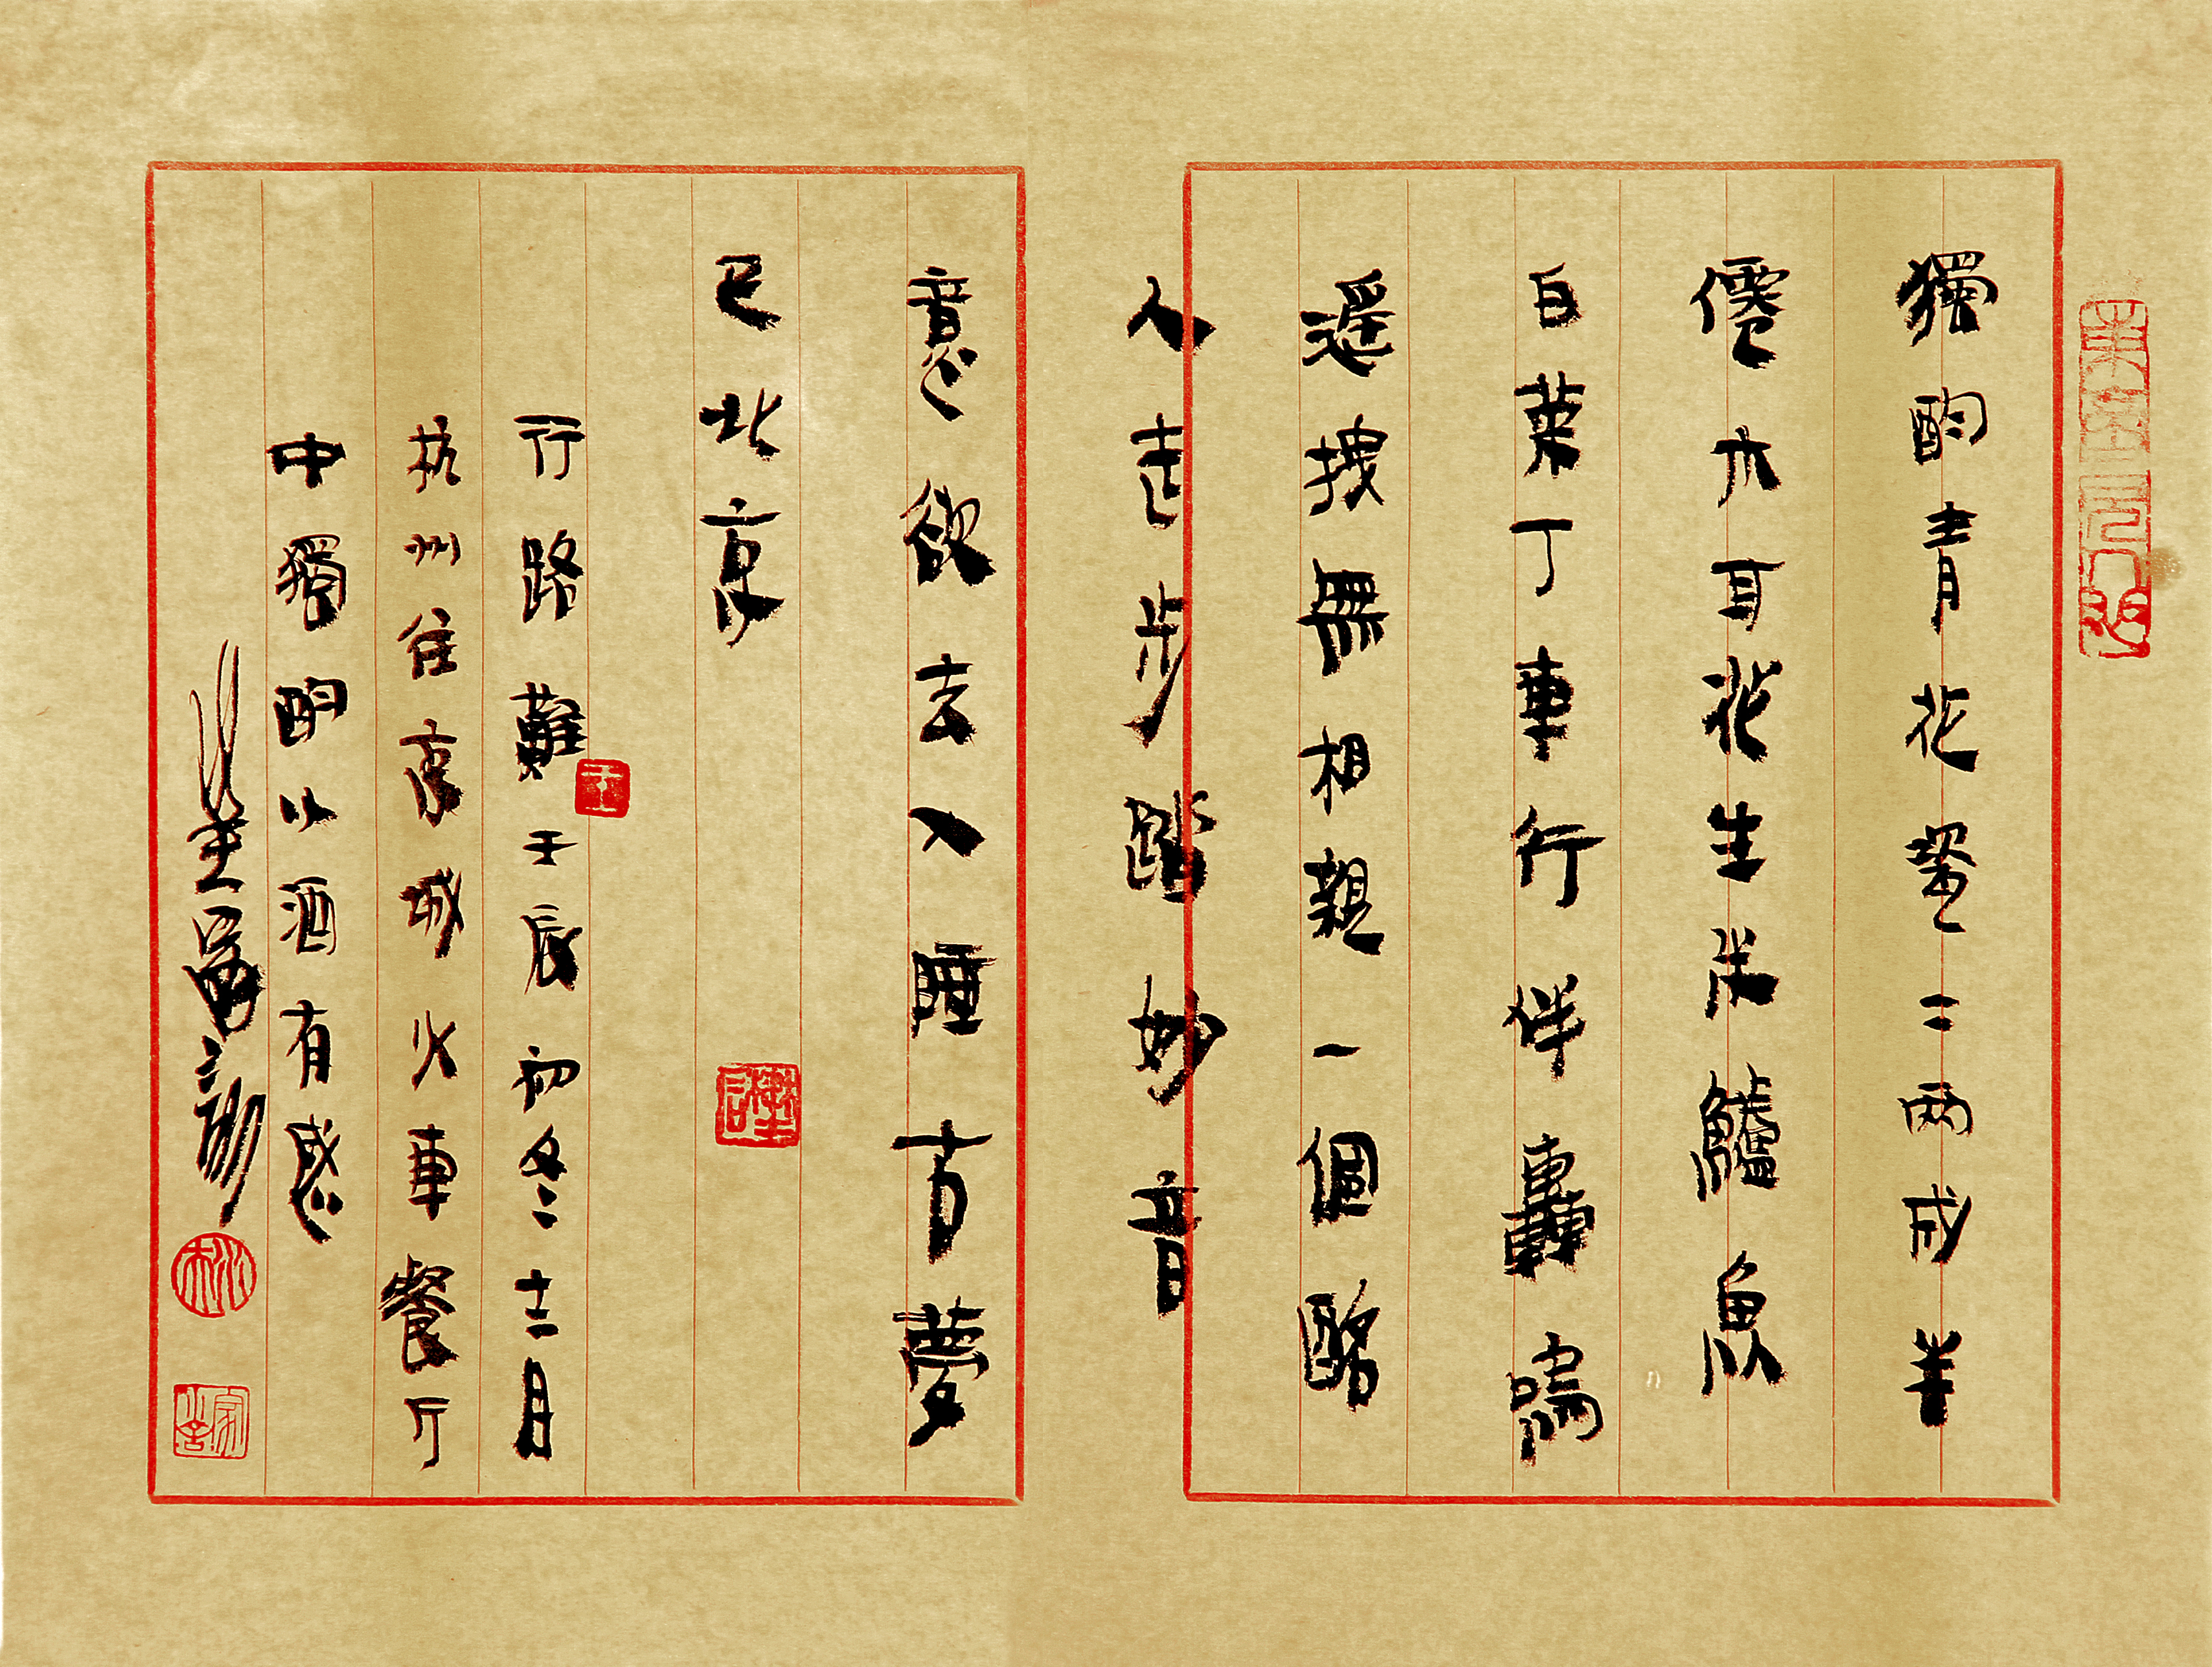 獨酌青花翠二兩成半
僊木耳花生米鱸魚
白菜丁車行伴轟鳴
遥拽無相親一個酩
人走步踏妙音
意欲去入睡方夢
已北京
行路難壬辰初冬十二月
杭州往京城火車餐厅
中獨酌以酒有感